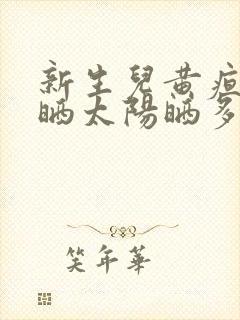 新生兒黃疸
晒太陽晒多
笑年華